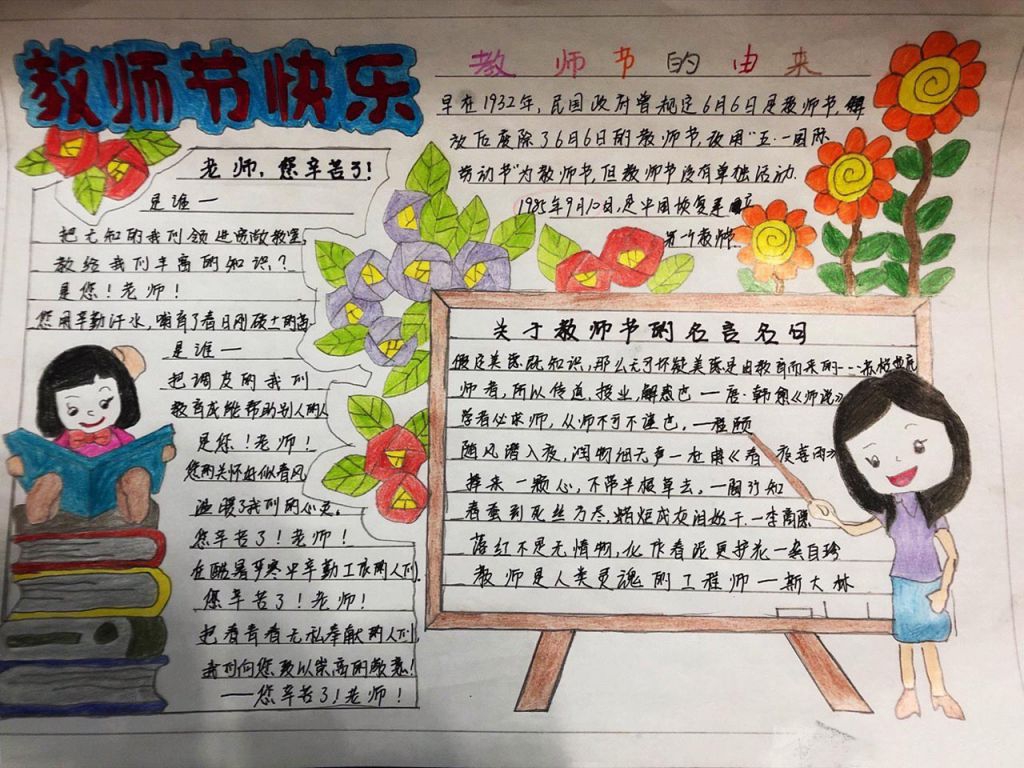 教师节快乐
老师，您辛苦了！
是谁一
把无知的我们领进宽敞教室，
教给我们丰富的知识？
是您！老师！
您用辛勤汗水，哺育了春日刚破土的苗
是谁一
把调皮的我们
教育成能帮助别人的人
是您！老师！
您的关怀好似春风
温暖了我们的心灵。
您辛苦了！老师！
在酷暑严寒中辛勤工作的人们
您辛苦了！老师！
把青春无私奉献的人们
我们向您致以崇高的敬意！
——您辛苦了！老师！
教师节的由来
早在1932年，民国政府曾规定6月6日是教师节，解
放后废除了6月6日的教师节，改用"五·一国际
劳动节"为教师节，但教师节没有单独活动.
1985年9月10日，是中国恢复建立
第一个教师
关于教师节的名言名句
假定美德既知识，那么无可怀疑美德是由教育而来的---苏格拉底
师者，所以传道，授业，解惑也 一唐·韩愈《师说》
学者必求师，从师不可不谨也，一程颐
随风潜入夜，润物细无声一杜甫《春夜喜雨》
捧来一颗心，不带半根草去，一陶行知
春蚕到死丝方尽，蜡炬成灰泪始干.一李商隐
落红不是无情物，化作春泥更护花一龚自珍
教师是人类灵魂的工程师一斯大林